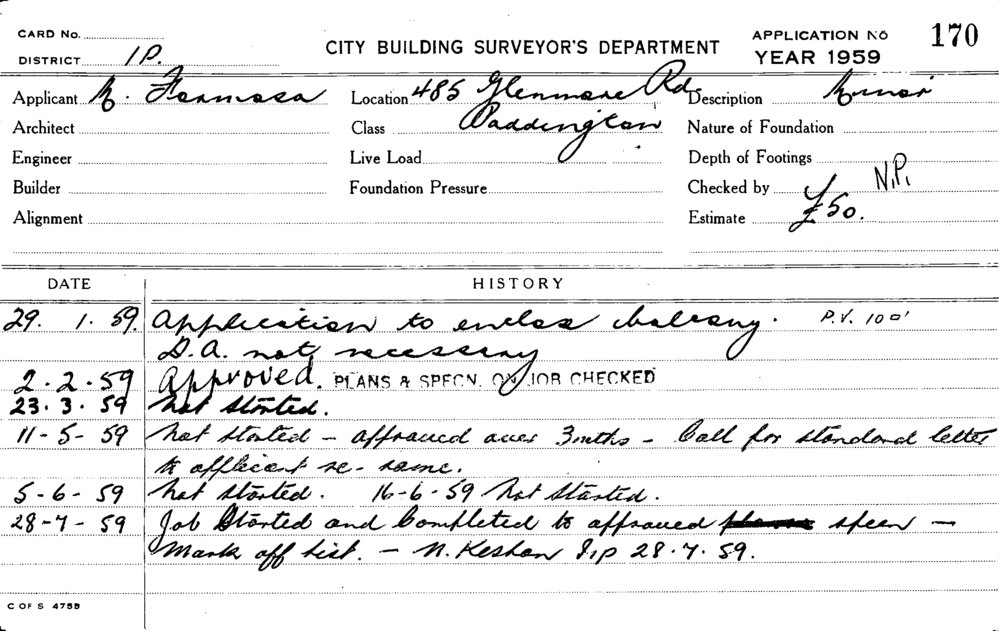 CARD No.
DISTRICT 1P.
CITY BUILDING SURVEYOR'S DEPARTMENT
APPLICATION No 170
YEAR 1959
Applicant M. Formosa
Location 485 Glenmore Rd
Description Minor
Architect
Class Paddington
Nature of Foundation
Engineer
Live Load
Depth of Footings
Builder
Foundation Pressure
Checked by N.P.
Alignment
Estimate £50.
DATE HISTORY
29. 1. 59. Application to enclose balcony. P.V. 100'
D.A. not necessary
2. 2. 59 Approved. PLANS & SPECN. ON JOB CHECKED
23. 3. 59 Not started.
11-5-59 Not started - approved over 3mths - Call for standard letter
to applicant re- same.
5-6-59 Not started. 16-6-59 Not Started.
28-7-59 Job Started and Completed to approved specn -
Mark off list. - N. Keshan 28.7.59.
C OF S 475B